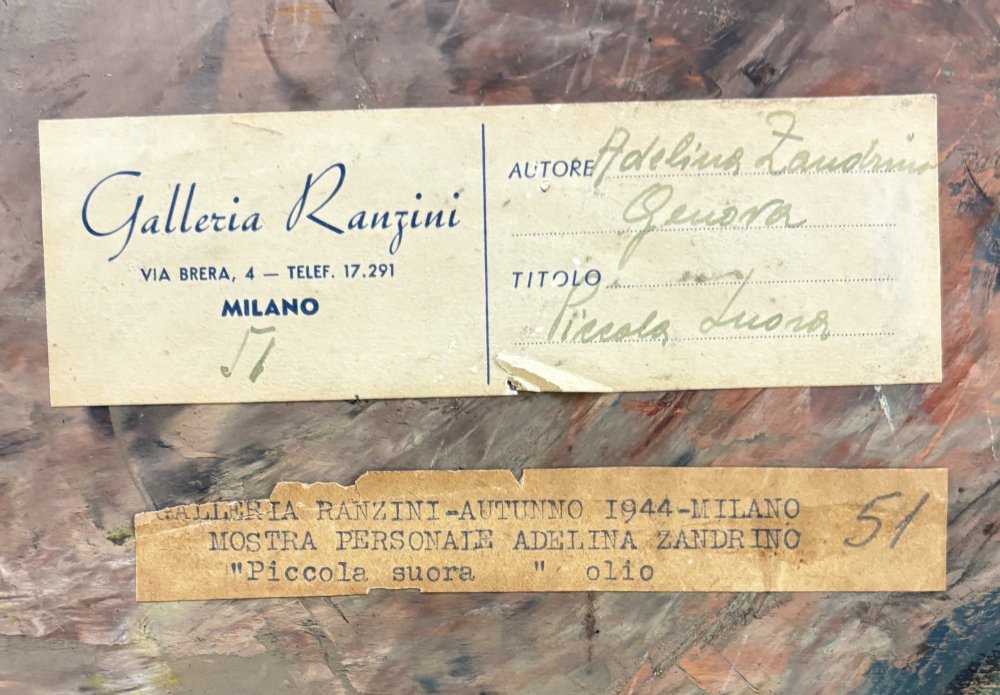 Galleria Ranzini
VIA BRERA, 4 — TELEF. 17.291
MILANO
51
AUTORE Adelina Zandrino
Genova
TITOLO
Piccola Suora
GALLERIA RANZINI-AUTUNNO 1944-MILANO
MOSTRA PERSONALE ADELINA ZANDRINO
"Piccola suora " olio
51